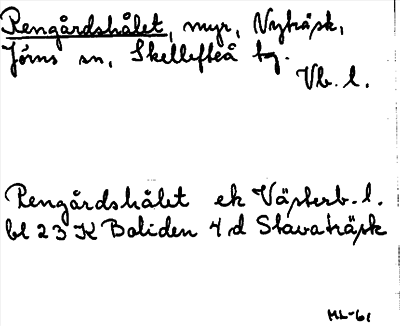 Rengårdshålet, myr, Nyträsk,
Jörns sn, Skellefteå tg.
Vb. l.
Rengårdshålet ek Västerb. l.
bl 23 K Boliden 4 d Slavaträsk
ML-61